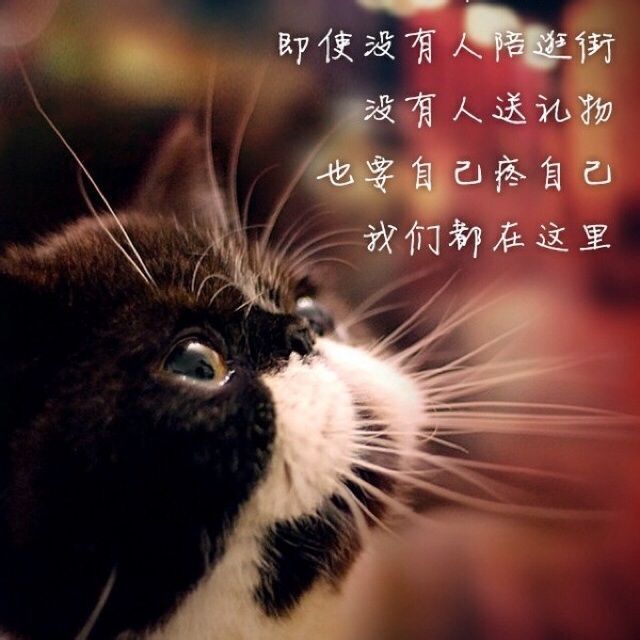 即使没有人陪逛街
没有人送礼物
也要自己疼自己
我们都在这里